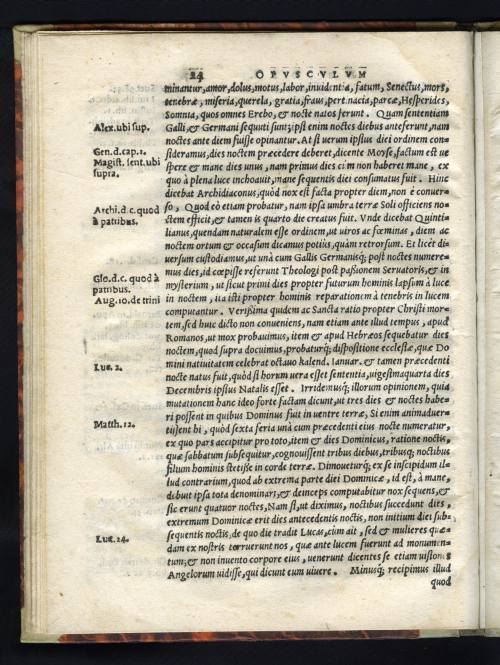 24 OPVSCVLVM
minantur, amor, dolus, motus, labor, inuidentia, fatum, Senectus, mors,
tenebræ, miseria, querela, gratia, fraus, pertinacia, parcæ, Hesperides,
Somnia, quos omnes Erebo, & nocte natos ferunt. Quam sententiam
Alex. ubi sup.
Galli, & Germani sequuti sunt; ipsi enim noctes diebus anteferunt, nam
noctes ante diem fuisse opinantur. At si uerum ipsius diei ordinem con=
Gen. d. cap. 1.
Magist. sent. ubi
supra.
sideramus, dies noctem præcedere deberet, dicente Moyse, factum est ue
spere & mane dies unus, nam primus dies cum non haberet mane, ex
quo à plena luce inchoauit, mane sequentis diei consumatus fuit. Hinc
dicebat Archidiaconus, quòd nox est facta propter diem, non è conuer=
Archi. d. c. quod
à patribus.
so, Quod eò etiam probatur, nam ipsa umbra terræ Soli officiens no=
ctem efficit, & tamen is quarto die creatus fuit. Vnde dicebat Quinti=
lianus, quendam naturalem esse ordinem, ut uiros ac fœminas, diem ac
noctem ortum & occasum dicamus potius, quàm retrorsum. Et licèt di=
uersum custodiamus, ut unà cum Gallis Germanisq; post noctes numere=
mus dies, id cœpisse referunt Theologi post passionem Seruatoris, & in
Glo. d. c. quod à
patribus.
Aug. 10. de trini
mysterium, ut sicut primi dies propter futurum hominis lapsum à luce
in noctem, ita isti propter hominis reparationem à tenebris in lucem
computantur. Verissima quidem ac Sancta ratio propter Christi mor=
tem, sed huic dicto non conueniens, nam etiam ante illud tempus, apud
Romanos, ut mox probauimus, item & apud Hebræos sequebatur dies
noctem, quod supra docuimus, probaturq; dispositione ecclesiæ, quæ Do
mini natiuitatem celebrat octauo kalend. Ianuar. & tamen præcedenti
Luc. 2.
nocte natus fuit, quòd si horum uera esset sententia, uigesimaquarta dies
Decembris ipsius Natalis esset. Irridemusq; illorum opinionem, quia
mutationem hanc ideo forte factam dicunt, ut tres dies & noctes habe=
ri possent in quibus Dominus fuit in uentre terræ, Si enim animaduer=
Matth. 12.
tissent hi, quòd sexta feria unà cum præcedenti eius nocte numeratur,
ex quo pars accipitur pro toto, item & dies Dominicus, ratione noctis,
quæ sabbatum subsequitur, cognouissent tribus diebus, tribusq; noctibus
filium hominis stetisse in corde terræ. Dimoueturq; ex se insipidum il=
lud contrarium, quod ab extrema parte diei Dominicæ, id est, à mane,
debuit ipsa tota denominari, & deinceps computabitur nox sequens, &
sic erunt quatuor noctes, Nam si, ut diximus, noctibus succedunt dies,
extremum Dominicæ erit dies antecedentis noctis, non initium diei sub=
Luc. 24.
sequentis noctis, de quo die tradit Lucas, cum ait, sed & mulieres quæ=
dam ex nostris terruerunt nos, quæ ante lucem fuerunt ad monumen=
tum, & non inuento corpore eius, uenerunt dicentes se etiam uisionem
Angelorum uidisse, qui dicunt eum uiuere. Minusq; recipimus illud
quod